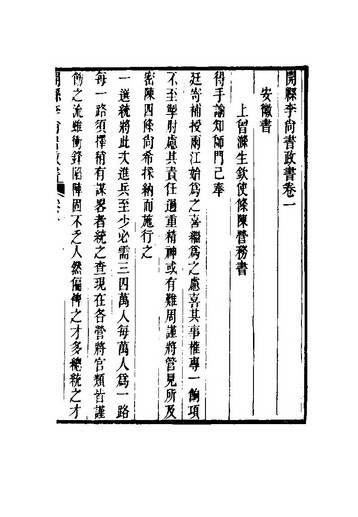 開縣李尚書政書卷一
安徽書
上曾滌生欽使條陳營務書
得手諭知師門已奉
廷寄補授兩江始為之喜繼為之慮喜其事權專一餉項
不至掣肘慮其責任過重精神或有難周謹將管見所及
密陳四條尚希採納而施行之
一選統將此次進兵至少必需三四萬人每萬人為一路
每一路須擇稍有謀畧者統之查現在各營將官類皆謹
飭之流雖衝鋒陷陣固不乏人然偏裨之才多總統之才
開縣李尚書政書